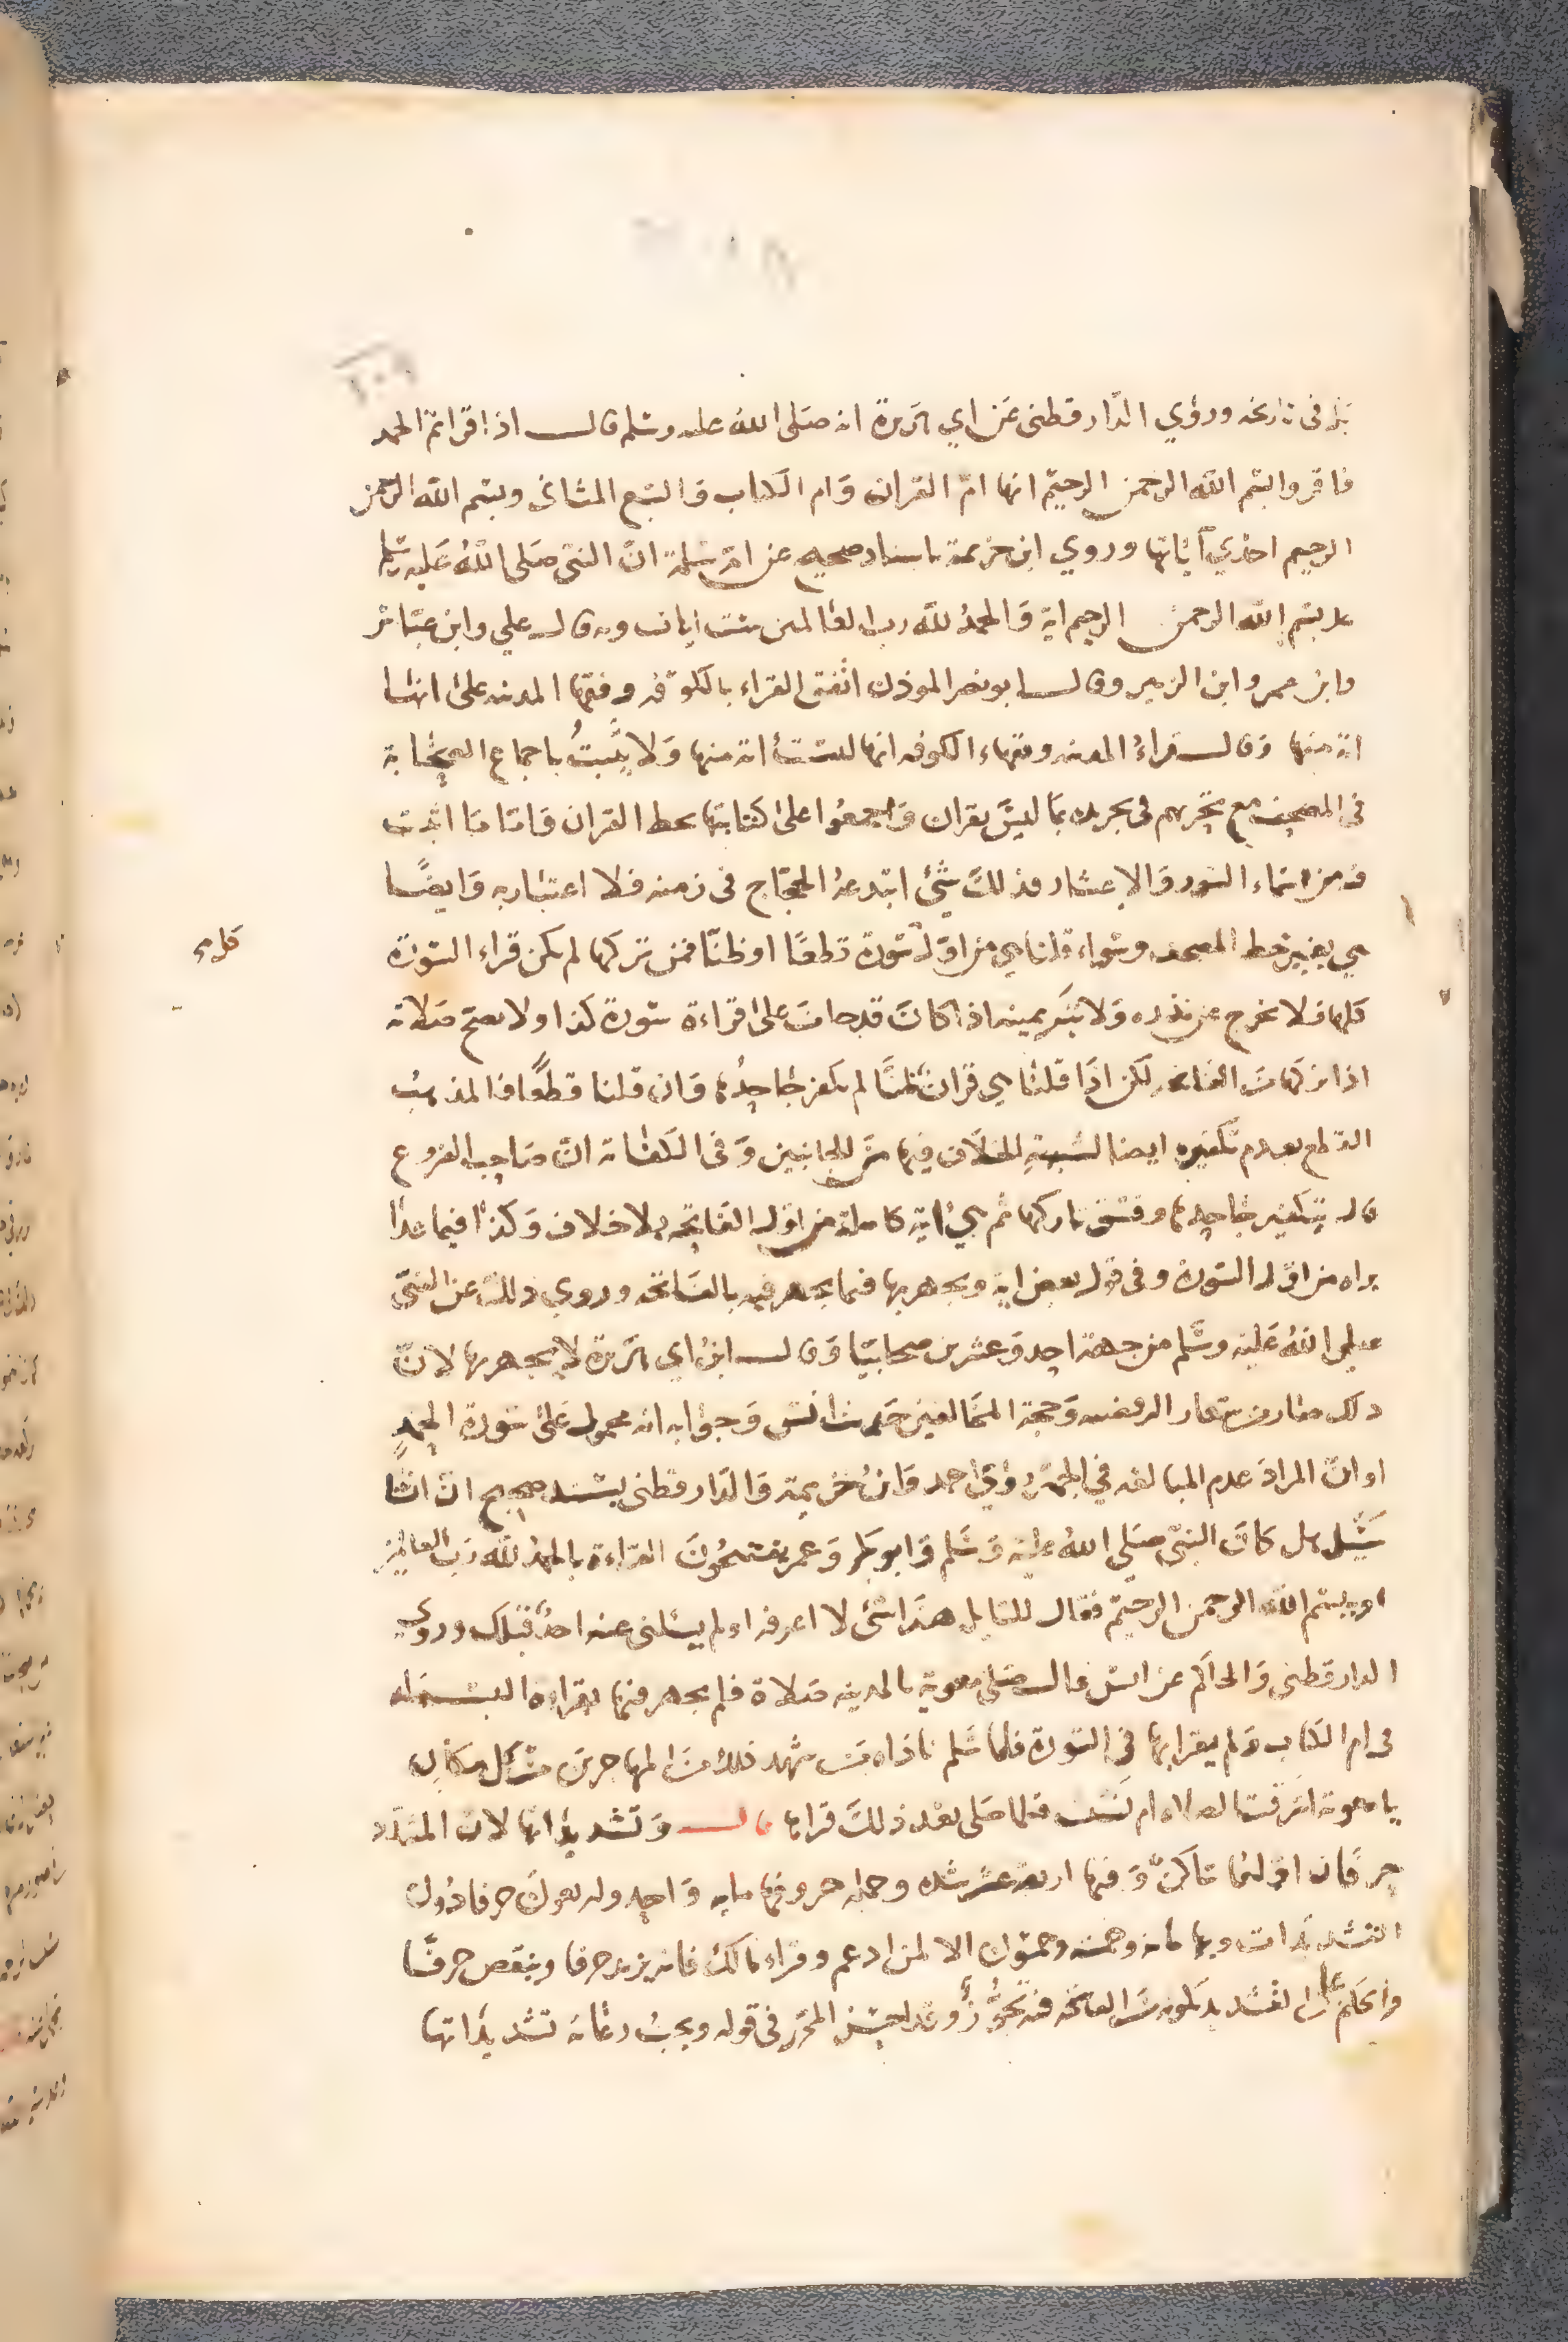 في تاريخه وروي الدارقطني عن ابي هريرة انه صلى الله عليه وسلم قال اذا قراتم الحمد
فاقروا بسم الله الرحمن الرحيم انها ام القران وام الكتاب والسبع المثاني وبسم الله الرحمن
الرحيم احدي آياتها وروي ابن خزيمة باسناد صحيح عن ام سلمة ان النبي صلى الله عليه وسلم
عد بسم الله الرحمن الرحيم اية والحمد لله رب العالمين ست ايات وبه قال علي وابن عباس
وابن عمر وابن الزبير وقال ابو نصر الموذن اتفق القراء بالكوفه وفقها المدينه على انها
اية منها وقال قراء المدينه وفقهاء الكوفه انها ليست اية منها ولا يثبت باجماع الصحابة
في المصحف مع تحريهم في تجريده بما ليس بقران واجمعوا على كتابتها بخط القران واما ما اثبت
فيه من اسماء السور والاعشار فذلك شيء ابتدعه الحجاج في زمنه فلا اعتبار به وايضا
هي بغير خط المصحف وسواء قلنا هي من اول سورة قطعا او ظنا فمن تركها لم يكن قراء السورة
كلها فلا يخرج عن نذره ولا يبر يمينه اذا كان قد حلف على اقراءة سورة كذا ولا يصح صلاته
اذا تركها من الفاتحه لكن اذا قلنا هي قران ظنا لم يكفر جاحدها وان قلنا قطعا فالمذهب
القطع بعدم تكفيره ايضا لشبهة الخلاف فيها من الجانبين وفي الكفاية ان صاحب الفروع
قال بتكفير جاحدها وفسق تاركها ثم هي اية كاملة من اول الفاتحه بلا خلاف وكذا فيما عدا
براه من اول السورة وفي قول بعض اية ويجهر بها فيما يجهر فيه بالفاتحه وروي ذلك عن النبي
صلى الله عليه وسلم من جهة احد وعشرين صحابيا وقال ابن ابي هريرة لا يجهر بها لان
ذلك صار من شعار الرفضه وحجة المخالفين حديث انس وجوابه انه محمول على سورة الحمد
او ان المراد عدم المبالغه في الجهر وروى احمد وابن خزيمة والدارقطني بسند صحيح ان انسا
سئل هل كان النبي صلى الله عليه وسلم وابو بكر وعمر يفتتحون القراءة بالحمد لله رب العالمين
او ببسم الله الرحمن الرحيم فقال للسايل هذا شئ لا اعرفه او لم يسئلني عنه احد قبلك وروى
الدارقطني والحاكم عن انس قال صلى معوية بالمدينه صلاة فلم يجهر فيها بقراءه البسمله
في ام الكتاب ولم يقرا بها في السورة فلما سلم ناداه من شهد ذلك من المهاجرين من كل مكان
يا معوية اسرقت الصلاه ام نسيت فلما صلى بعد ذلك قرا بها قال وتشديداتها لان المشدد
حرفان اولهما ساكن وفيها اربعة عشر شده وجمله حروفها مايه واحد ولربعون حرفا دون
التشديدات وبها مايه وخمسه وخمسون الا لمن ادغم وقراء مالك فانه يزيد حرفا وينقص حرفا
والحكم على التشديد بكونه من الفاتحه فيه تجوز وقد احسن المحرر في قوله ويجب رعاية تشديداتها
كلامه